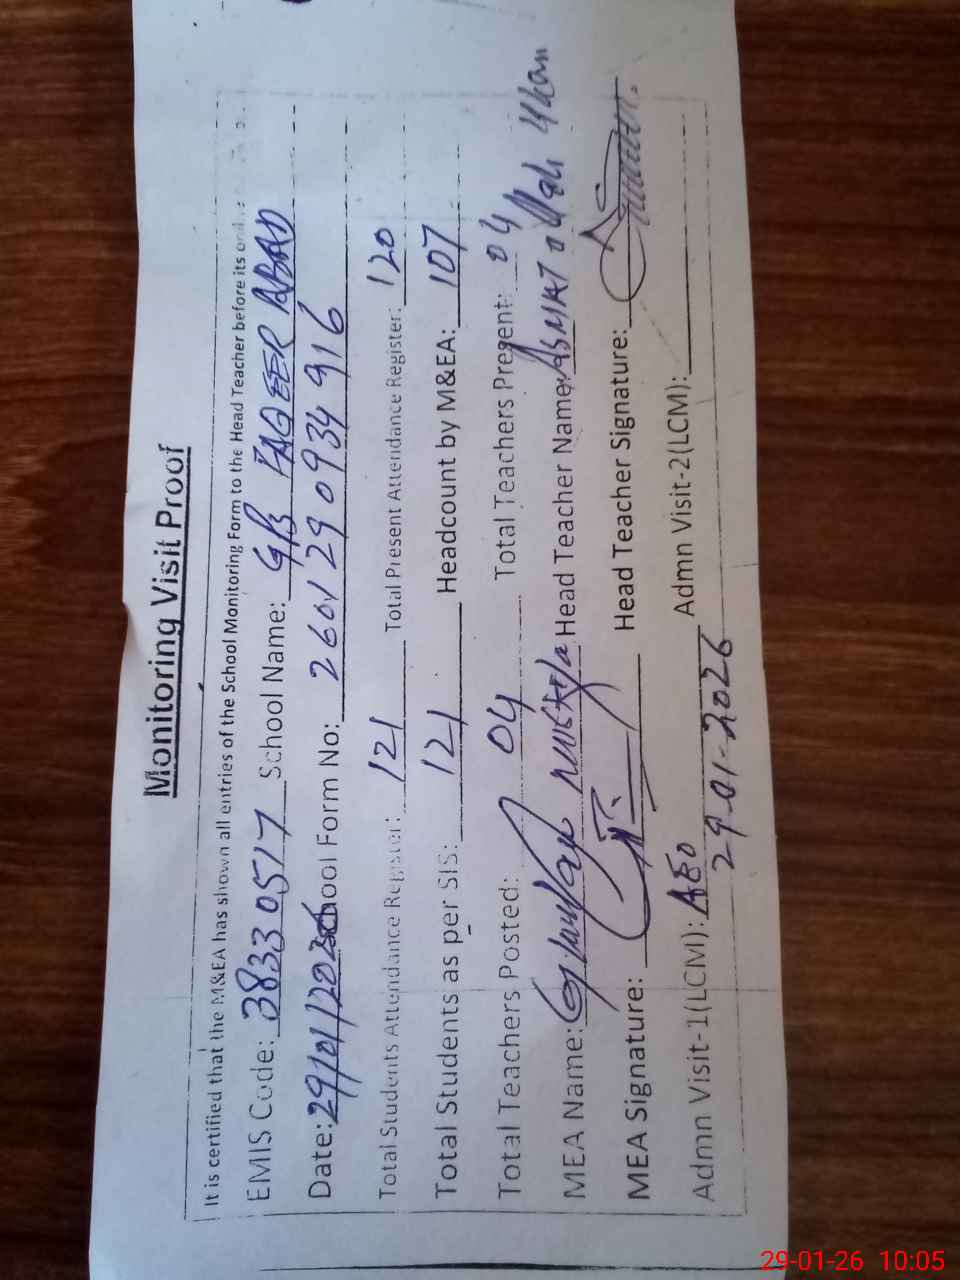 Monitoring Visit Proof
It is certified that the M&EA has shown all entries of the School Monitoring Form to the Head Teacher before its
EMIS Code: 38330517 School Name: G/B FAQEER ABAD
Date: 29/01/2026 School Form No: 260129 0934 916
Total Students Attendance Register: 121 Total Present Attendance Register: 120
Total Students as per SIS: 121 Headcount by M&EA: 107
Total Teachers Posted: 04 Total Teachers Present: 04
MEA Name: Head Teacher Name: Khan
MEA Signature: Head Teacher Signature:
Admn Visit-1(LCM): AEO Admn Visit-2(LCM):
29-01-2026
29-01-26 10:05